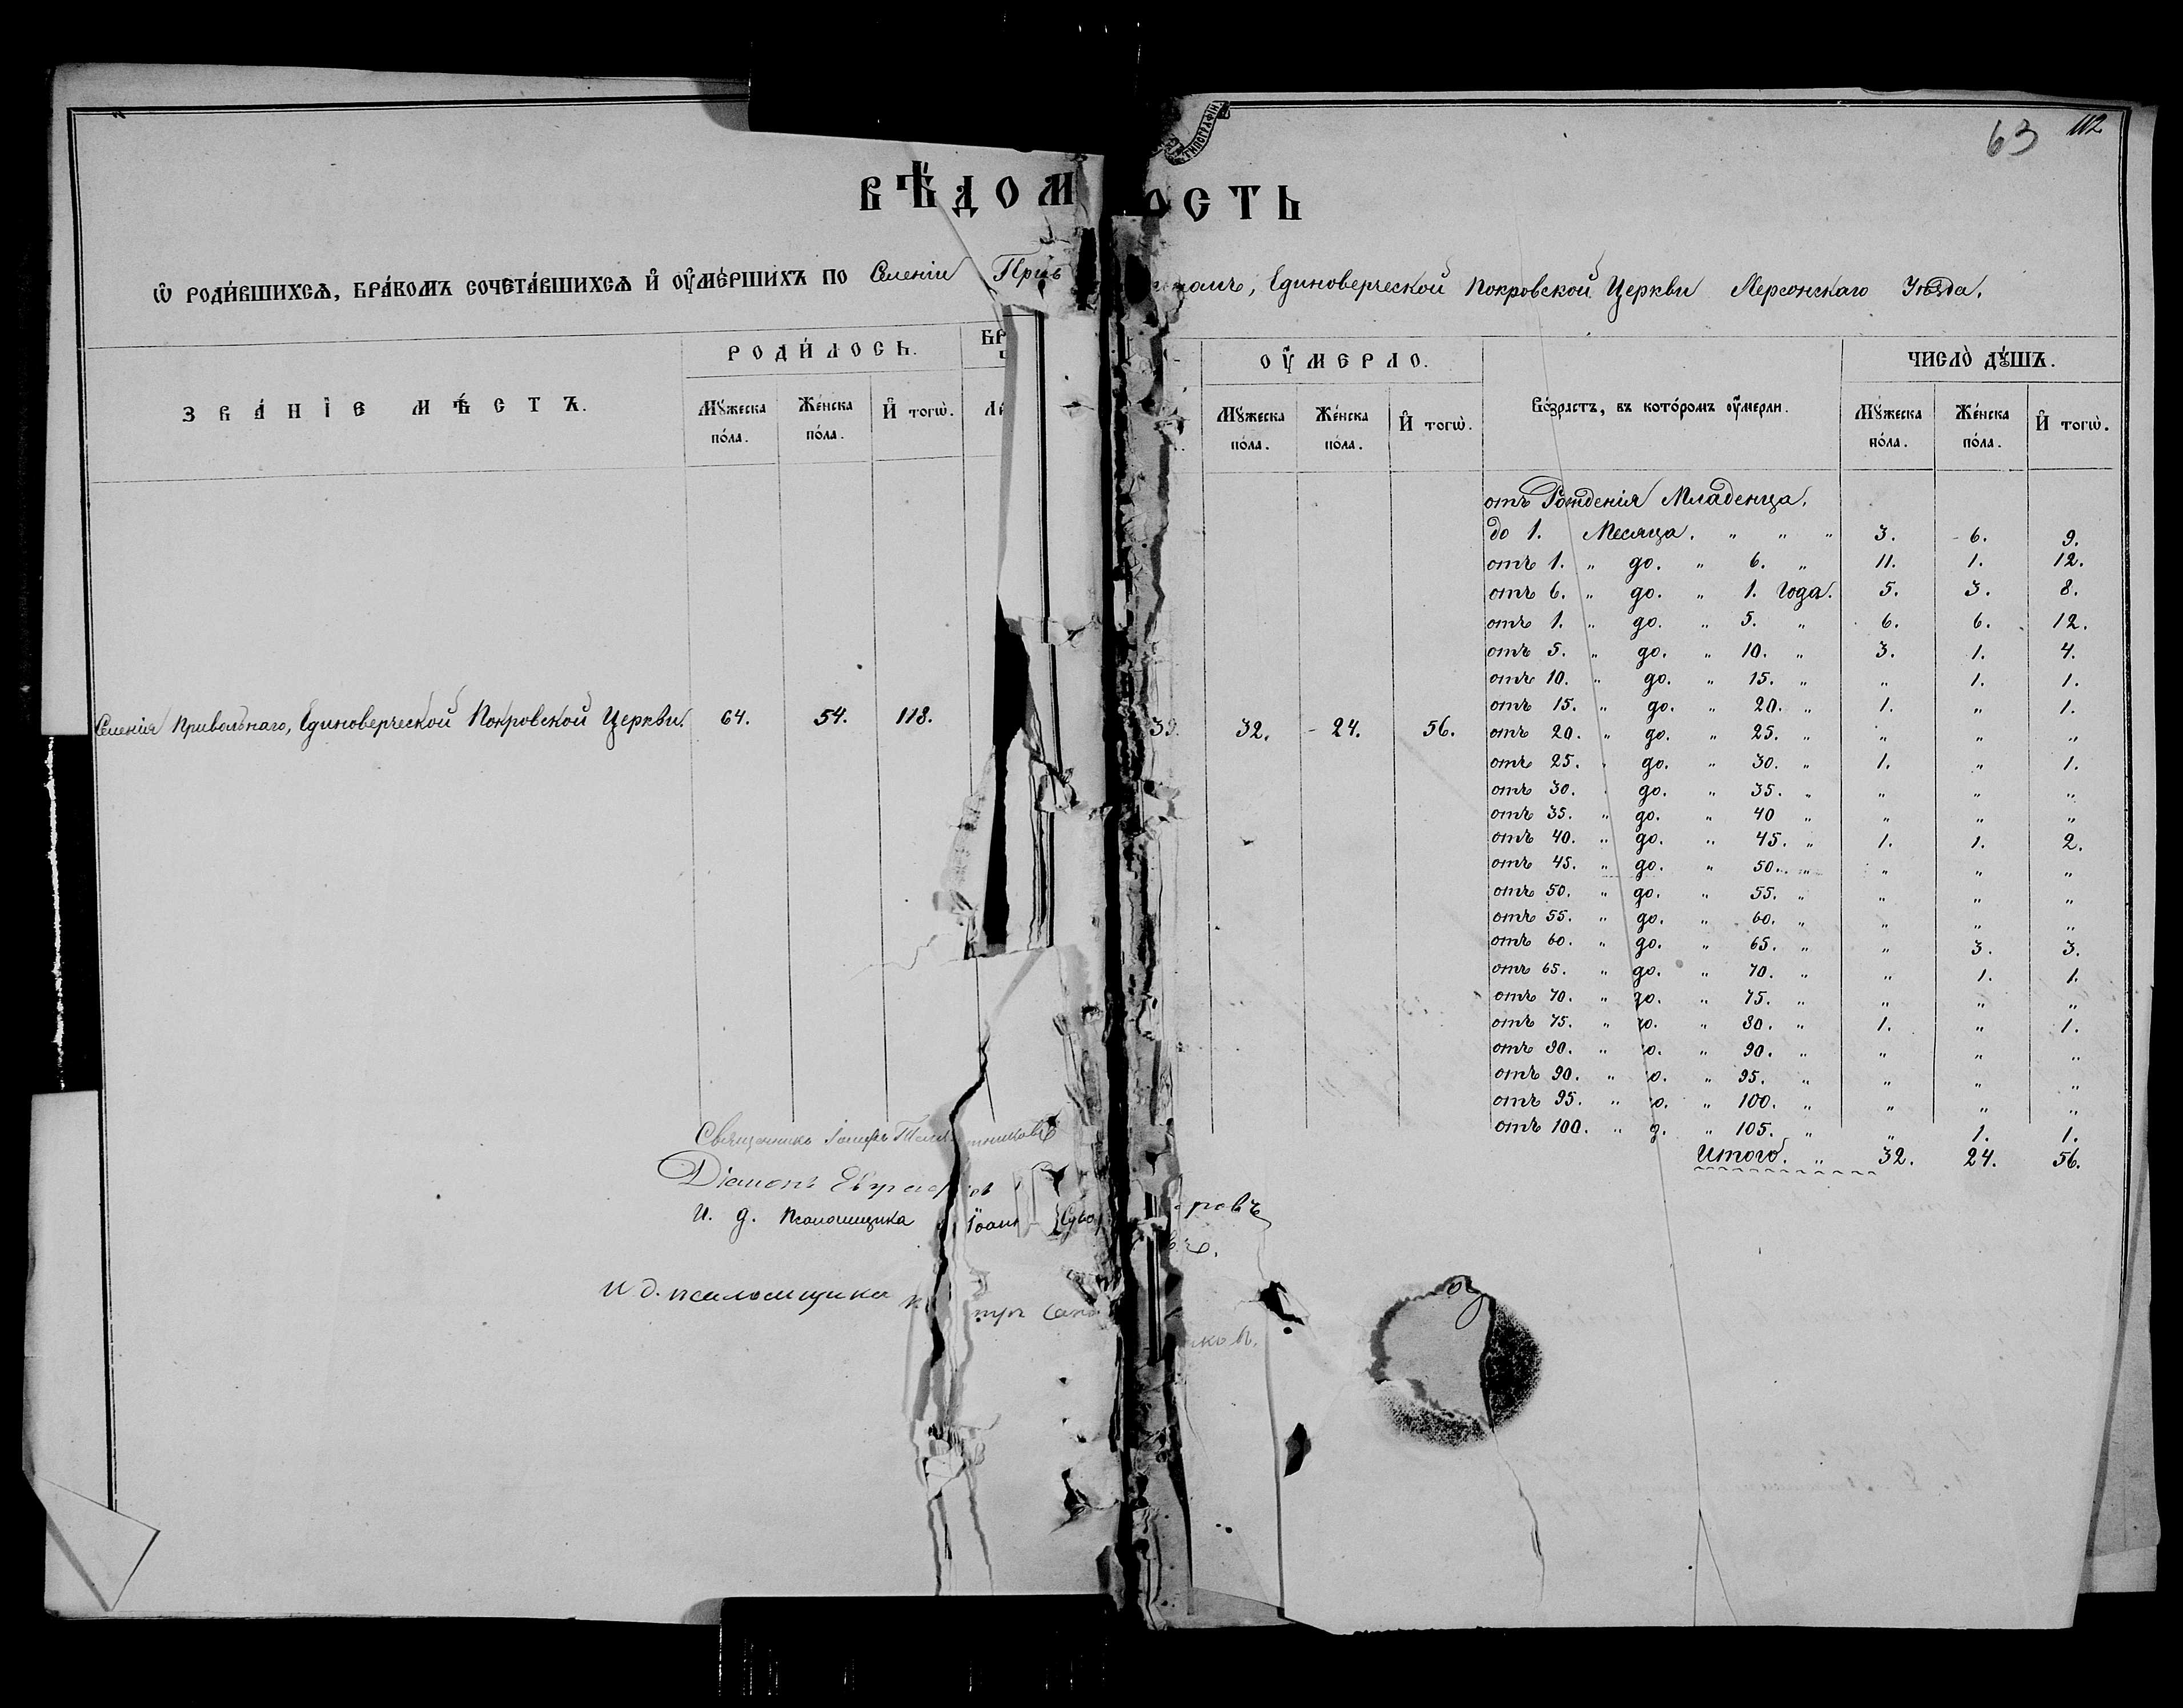 63 112
ТИПОГРАФІИ
ВѢДОМ ОСТЬ
Ѡ РОДИ́ВШИХСѦ, БРА́КОМЪ СОЧЕТА́ВШИХСѦ И҆ ОУ҆МЕ́РШИХЪ ПО Селенiи Прив номъ, Единоверческой Покровской Церкви Херсонскаго Уѣзда.
ЗВА́НІЕ МѢ́СТЪ.
РОДИ́ЛОСЬ.
БР
ОУ҆МЕРЛО.
Во́зрастъ, въ кото́ромъ оу҆мерли.
ЧИСЛО̀ ДꙊ́ШЪ.
Мꙋ́жеска по́ла.
Же́нска по́ла.
И҆ тогѡ̀.
Мꙋ́жеска по́ла.
Же́нска по́ла.
И҆ тогѡ̀.
Мꙋ́жеска по́ла.
Же́нска по́ла.
И҆ тогѡ̀.
отъ Рожденія Младенца.
до 1. Месяца. „ „ „ 3. 6. 9.
отъ 1. „ до. „ 6. „ 11. 1. 12.
отъ 6. „ до. „ 1. Года. 5. 3. 8.
отъ 1. „ до. „ 5. „ 6. 6. 12.
отъ 5. „ до. „ 10. „ 3. 1. 4.
отъ 10. „ до. „ 15. „ „ 1. 1.
отъ 15. „ до. „ 20. „ 1. „ 1.
Селенія Привольнаго, Единоверческой Покровской Церкви. 64. 54. 118. 39. 32. 24. 56.
отъ 20. „ до. „ 25. „ „ „ „
отъ 25. „ до. „ 30. „ 1. „ 1.
отъ 30. „ до. „ 35. „ „ „ „
отъ 35. „ до. „ 40 „ „ „ „
отъ 40. „ до. „ 45. „ 1. 1. 2.
отъ 45. „ до. „ 50. „ „ „ „
отъ 50. „ до. „ 55. „ „ „ „
отъ 55. „ до. „ 60. „ „ „ „
отъ 60. „ до. „ 65. „ „ 3. 3.
отъ 65. „ до. „ 70. „ „ 1. 1.
отъ 70. „ до. „ 75. „ „ „ „
отъ 75. „ до. „ 80. „ 1. „ 1.
отъ 90. „ до. „ 90. „ „ „ „
отъ 90. „ до. „ 95. „ „ „ „
отъ 95. „ до. „ 100. „ „ „ „
отъ 100. „ д. „ 105. „ „ 1. 1.
Итого. „ 32. 24. 56.
Священникъ
Діаконъ
И. д. Псаломщика Іоан
ровъ
въ.
И. д. псаломщика
ковъ.